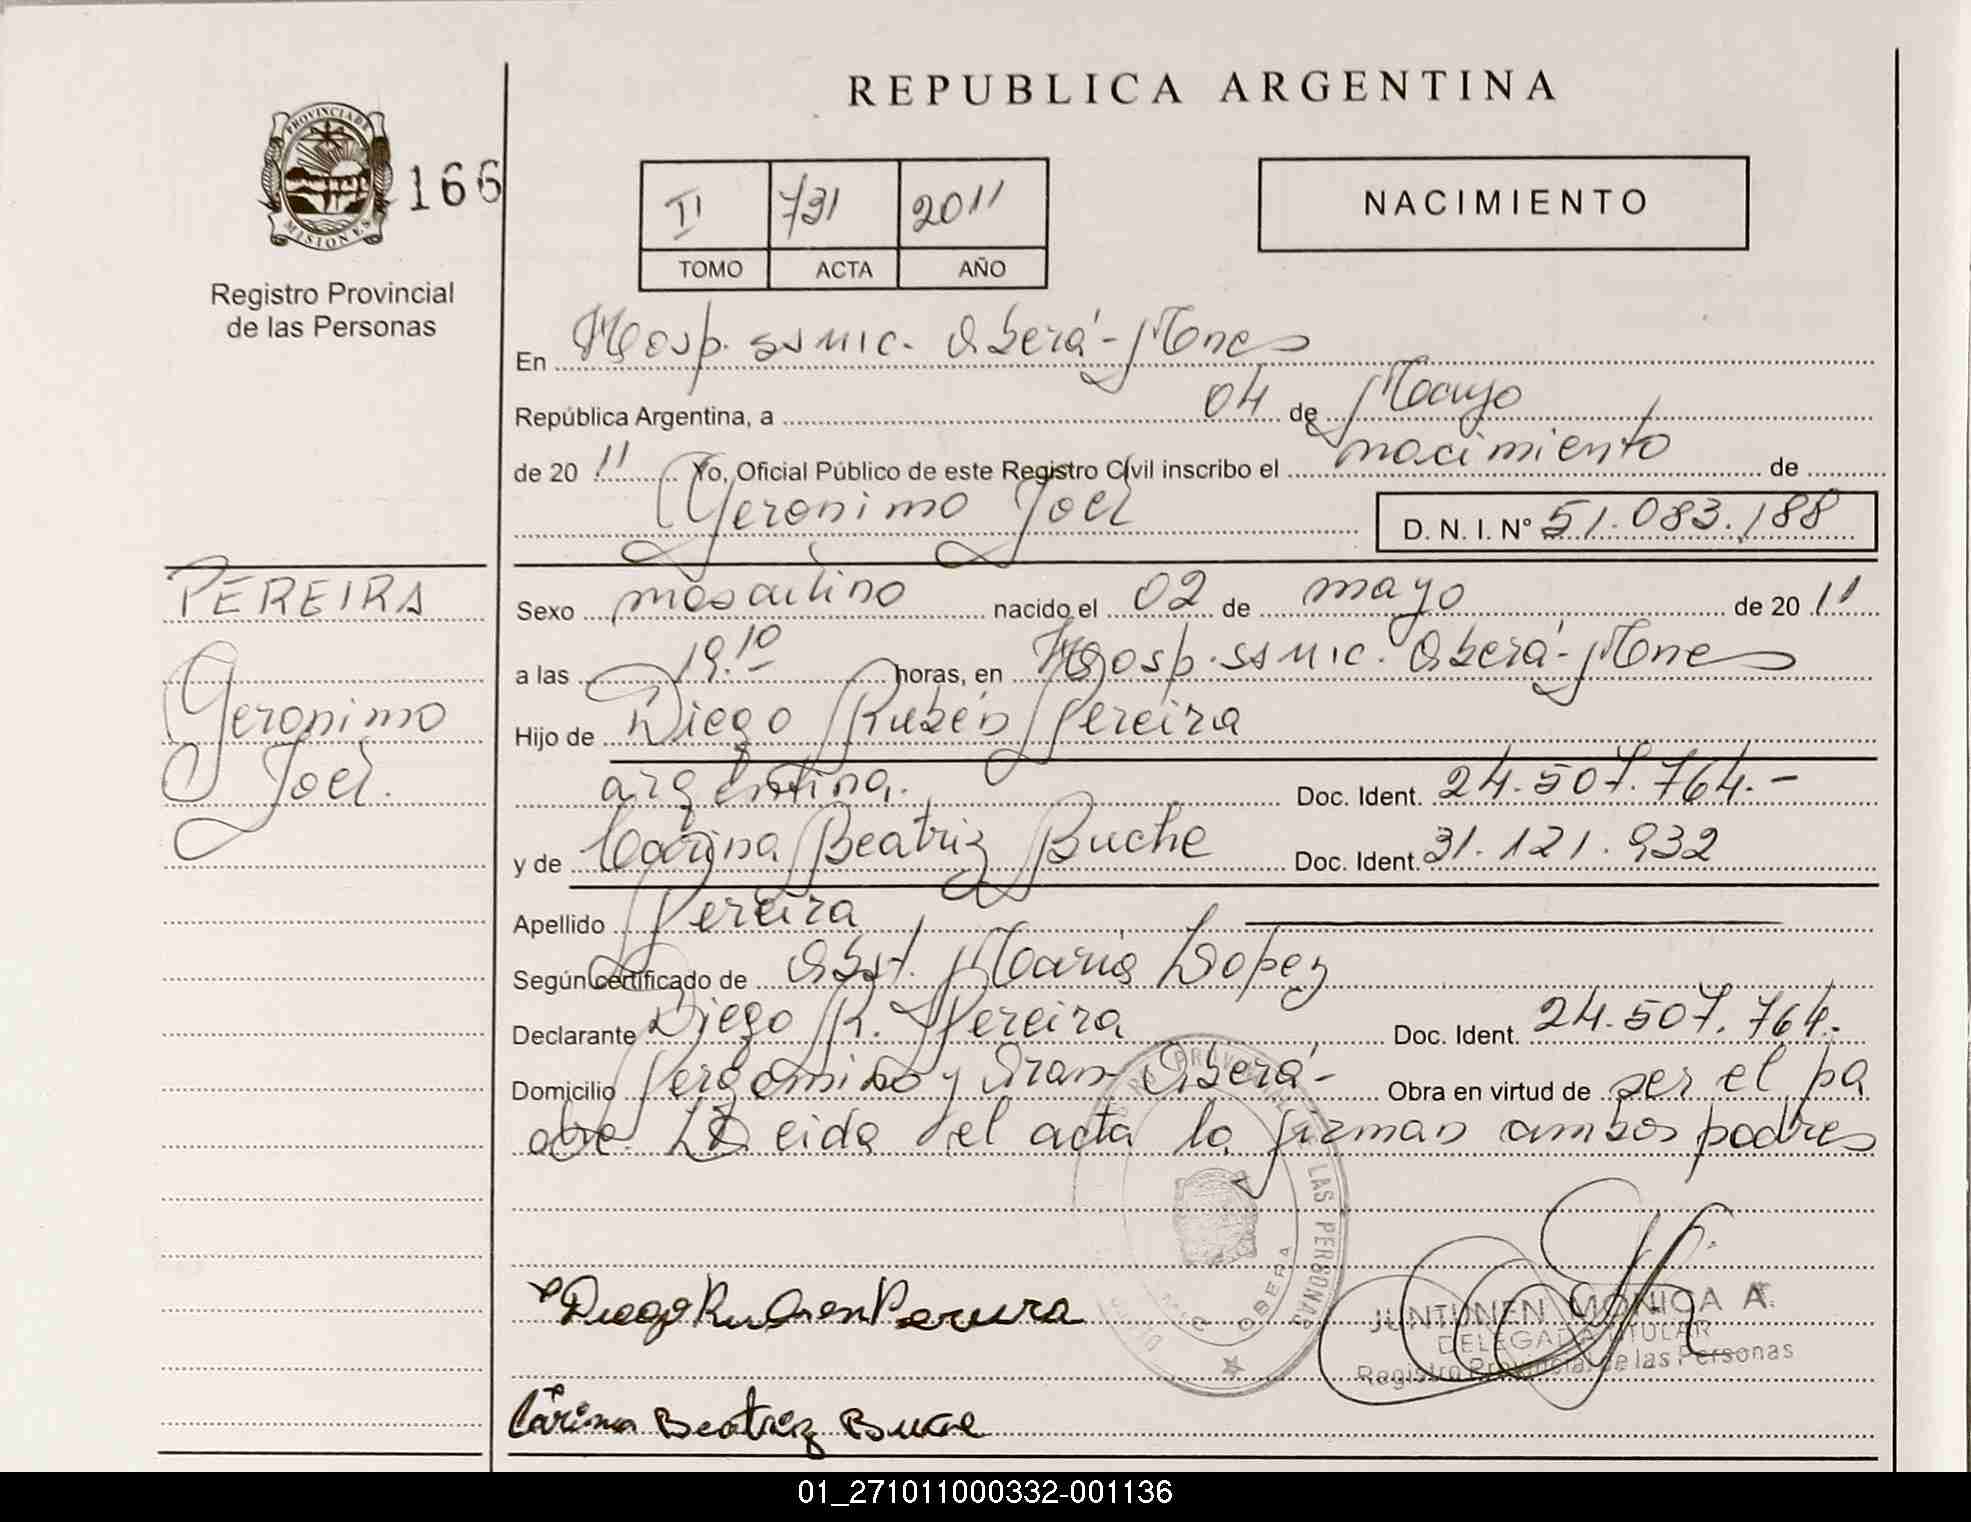 REPUBLICA ARGENTINA
PROVINCIA DE
MISIONES
166
Registro Provincial
de las Personas
II 731 2011
TOMO ACTA AÑO
NACIMIENTO
En Hosp. SSMIC. Oberá - Mnes
República Argentina, a 04 de Mayo
de 20 11 Yo, Oficial Público de este Registro Civil inscribo el nacimiento de
Geronimo Joel D. N. I. Nº 51.083.188
PEREIRA
Geronimo
Joel.
Sexo masculino nacido el 02 de mayo de 20 11
a las 19.10 horas, en Hosp. SSMIC. Oberá - Mnes
Hijo de Diego Rubén Pereira
argentina. Doc. Ident. 24.507.764.-
y de Carina Beatriz Buche Doc. Ident. 31.121.932
Apellido Pereira
Según certificado de Obst. María Lopez
Declarante Diego R. Pereira Doc. Ident. 24.507.764.-
Domicilio Pergamino y Iran - Oberá - Obra en virtud de ser el pa
dre. Leida del acta la firman ambos padres
LAS PERSONAS
OBERA
Diego Ruben Pereira
JUNTUNEN MONICA A.
DELEGADA TITULAR
Registro Provincial de las Personas
Carina Beatriz Buche
01_271011000332-001136